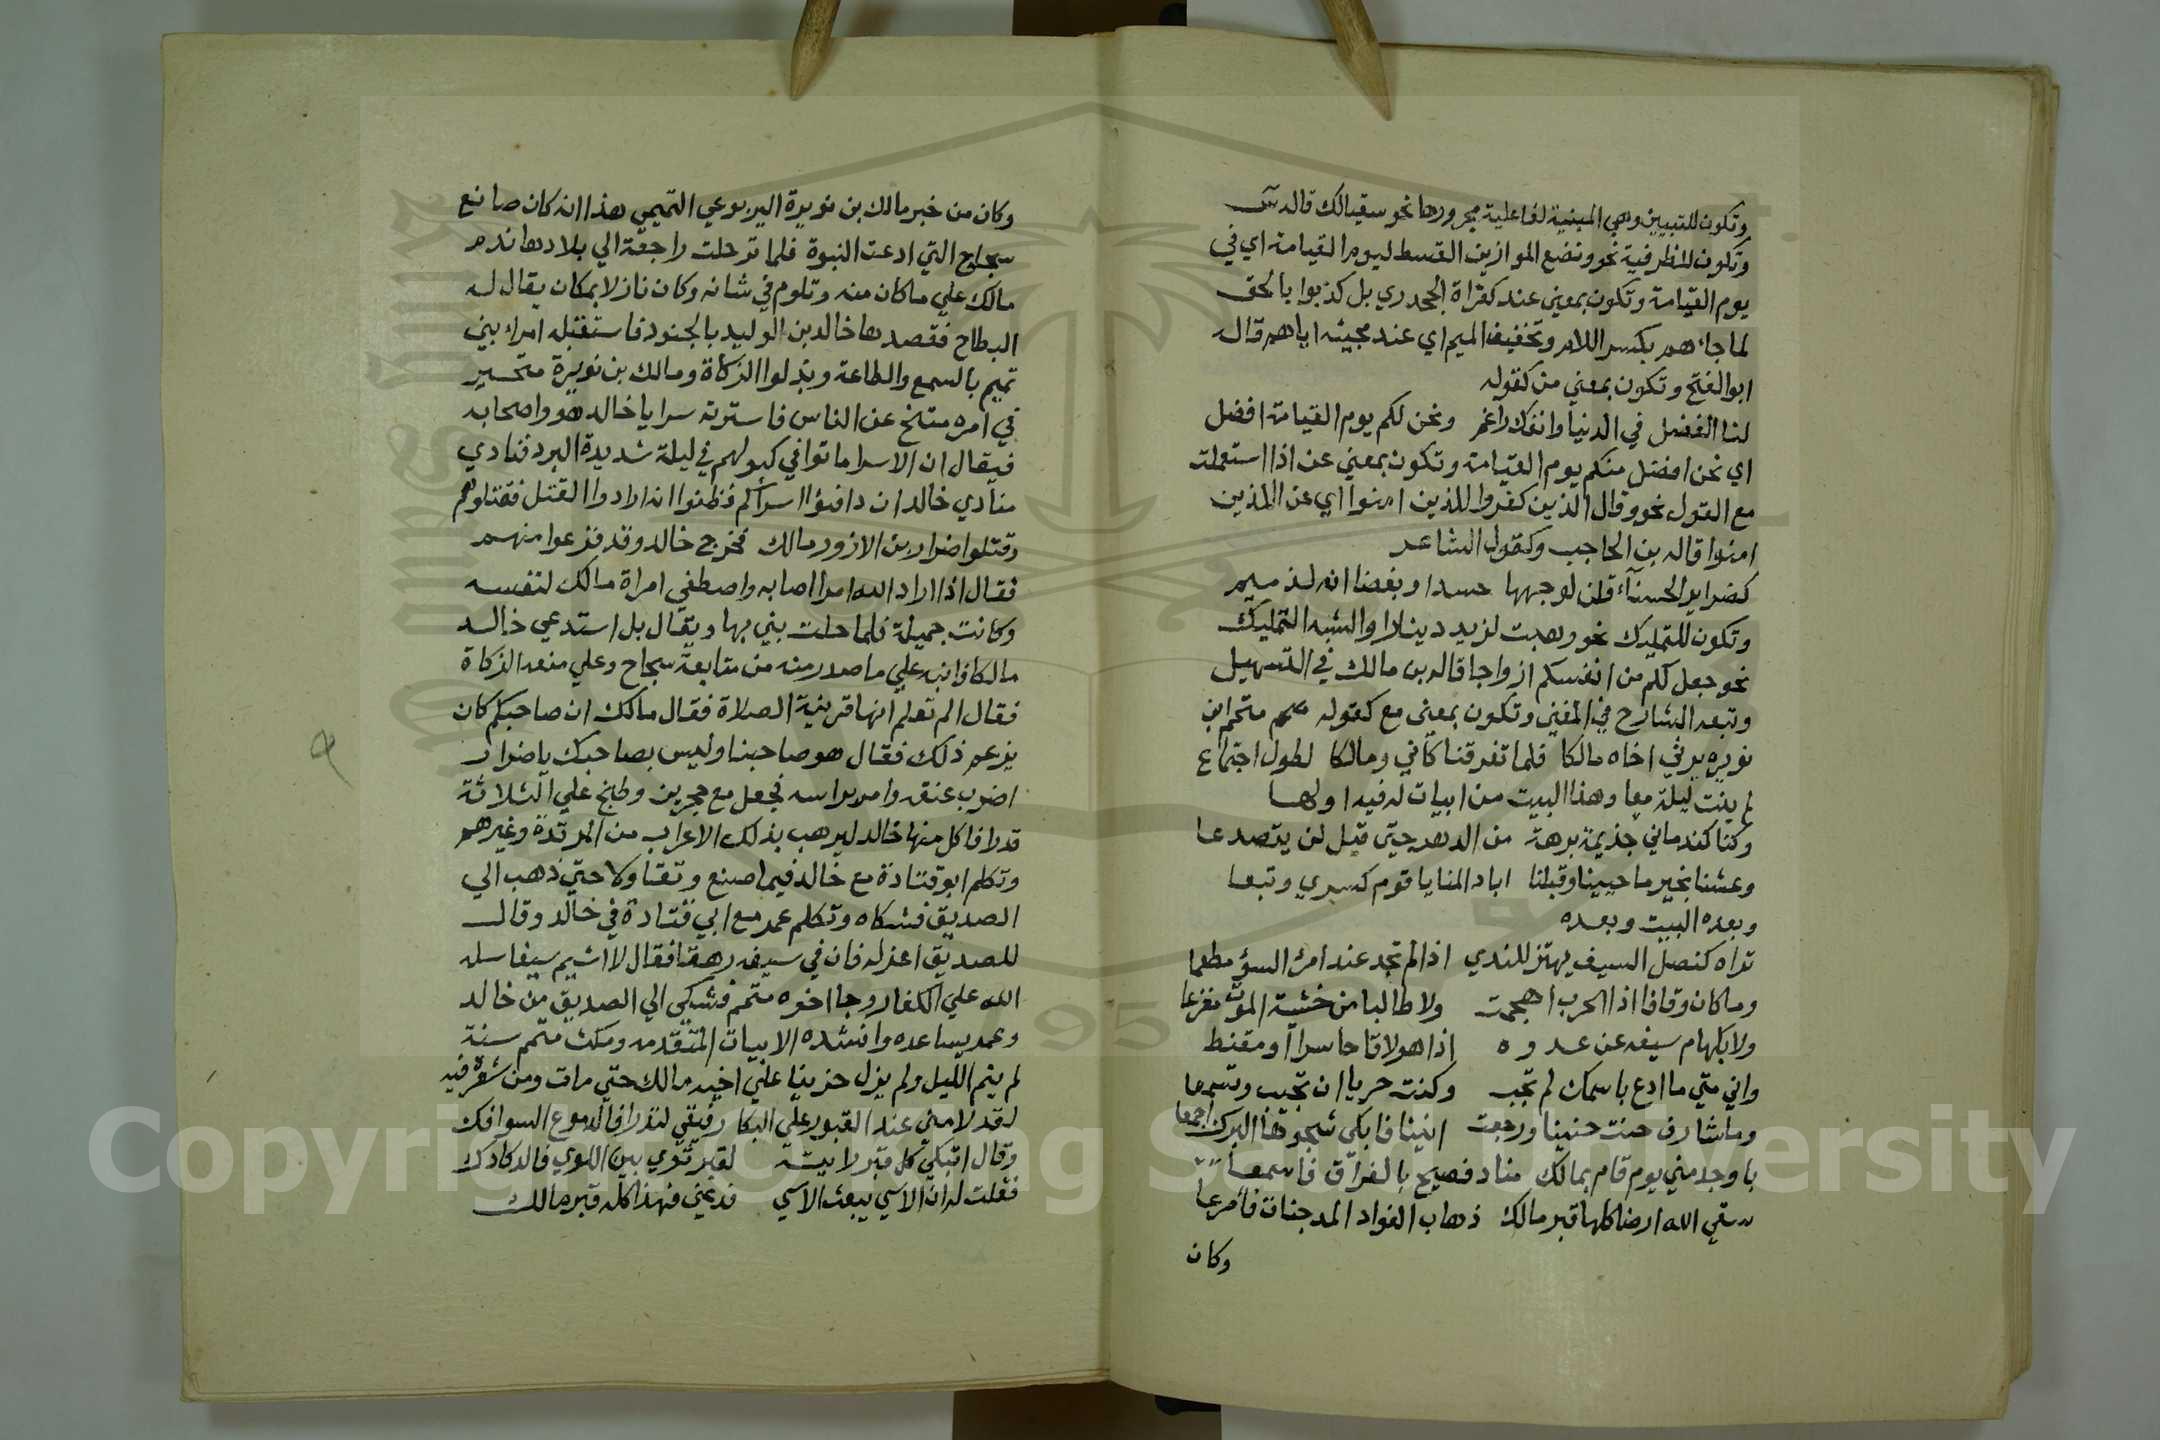 وتكون للتبيين وهي المبينية لفاعلية مجرورها نحو سقيا لك قاله س
وتكون للظرفية نحو ونضع الموازين القسط ليوم القيامة اي في
يوم القيامة وتكون بمعني عند كقراة الجحدري بل كذبوا بالحق
لما جاءهم بكسر اللام وتخفيف الميم اي عند مجيئه اياهم قاله
ابو الفتح وتكون بمعني من كقوله
لنا الفضل في الدنيا وانفك راغم ونحن لكم يوم القيامة افضل
اي نحن افضل منكم يوم القيامة وتكون بمعني عن اذا استعملت
مع القول نحو وقال الذين كفروا للذين امنوا اي عن الذين
امنوا قاله بن الحاجب وكقول الشاعر
كضراير الحسنآء قلن لوجهها حسدا وبغضا انه لذميم
وتكون للتمليك نحو وهبت لزيد دينارا والشبه التمليك
نحو جعل لكم من انفسكم ازواجا قاله بن مالك في التسهيل
وتبعه الشارح في المغني وتكون بمعني مع كقوله متمم ابن
نويره يرثي اخاه مالكا فلما تفرقنا كاني ومالكا لطول اجتماع
لم يبت ليلة معا وهذا البيت من ابيات له فيه اولها
وكنا كندماني جذيمة برهة من الدهر حتي قيل لن يتصدعا
وعشنا بخير ما حيينا وقبلنا اباد المنايا قوم كسري وتبعا
وبعده البيت وبعده
تراه كنصل السيف يهتز للندي اذا لم تجد عند امرء السؤ مطعما
وما كان وقافا اذا الحرب احجمت ولا طالبا من خشية الموت مفزعا
ولا بكهام سيفه عن عدوه اذا هو لاقا حاسرا او مقنط
واني متي ما ادع باسمك لم تجب وكنت حريا ان تجيب وتسمعا
وما شارف حنت حنينا ورجعت انينا فابكي شجوها البرك اجمعا
باوجد مني يوم قام بمالك مناد فصيح بالفراق فاسمعا
سقي الله ارضا كلها قبر مالك ذهاب الغواد المدجنات فامرعا
وكان
وكان من خبر مالك بن نويرة اليربوعي التميمي هذا انه كان صانع
سجاح التي ادعت النبوة فلما ترحلت راجعة الي بلادها ندم
مالك علي ما كان منه وتلوم في شانه وكان نازلا بمكان يقال له
البطاح فقصدها خالد بن الوليد بالجنود فاستقبله امراء بني
تميم بالسمع والطاعة وبذلوا الزكاة ومالك بن نويرة متحير
في امره متنخ عن الناس فاسرته سرايا خالد هو واصحابه
فيقال ان الاسرا ماتوا في كبولهم في ليلة شديدة البرد فنادي
منادي خالد ان دافئوا اسراكم فظنوا انه ارادوا القتل فقتلوهم
وقتلوا ضرار بن الازور مالك فخرج خالد وقد فزعوا منهم
فقال اذا اراد الله امرا اصابه واصطفي امراة مالك لنفسه
وكانت جميلة فلما حلت بني بها ويقال بل استدعي خالد
مالكا فانبه علي ما صدر منه من متابعة سجاح وعلي منعه الزكاة
فقال الم تعلم انها قرينة الصلاة فقال مالك ان صاحبكم كان
يزعم ذلك فقال هو صاحبنا وليس بصاحبك يا ضرار
اضرب عنقه وامر براسه فجعل مع حجرين وطبخ علي الثلاثة
قدرا فاكل منها خالد ليرهب بذلك الاعراب من المرتدة وغيرهم
وتكلم ابو قتادة مع خالد فيما صنع وتقاولا حتي ذهب الي
الصديق فشكاه وتكلم عمر مع ابي قتادة في خالد وقال
للصديق اعزله فان في سيفه رهقا فقال لا اشيم سيفا سله
الله علي الكفار وجا اخوه متمم فشكي الي الصديق من خالد
وعمر يساعده وانشده الابيات المتقدمه ومكث متمم سنة
لم ينم الليل ولم يزل حزينا علي اخيه مالك حتي مات ومن شعره فيه
لقد لامني عند القبور علي البكا رفيقي لتذراف الدموع السوافك
وقال اتبكي كل قبر رايته لقبر ثوي بين اللوي فالدكادك
فقلت له ان الاسي يبعث الاسي فدعني فهذا كله قبر مالك
Copyright © King Saud University